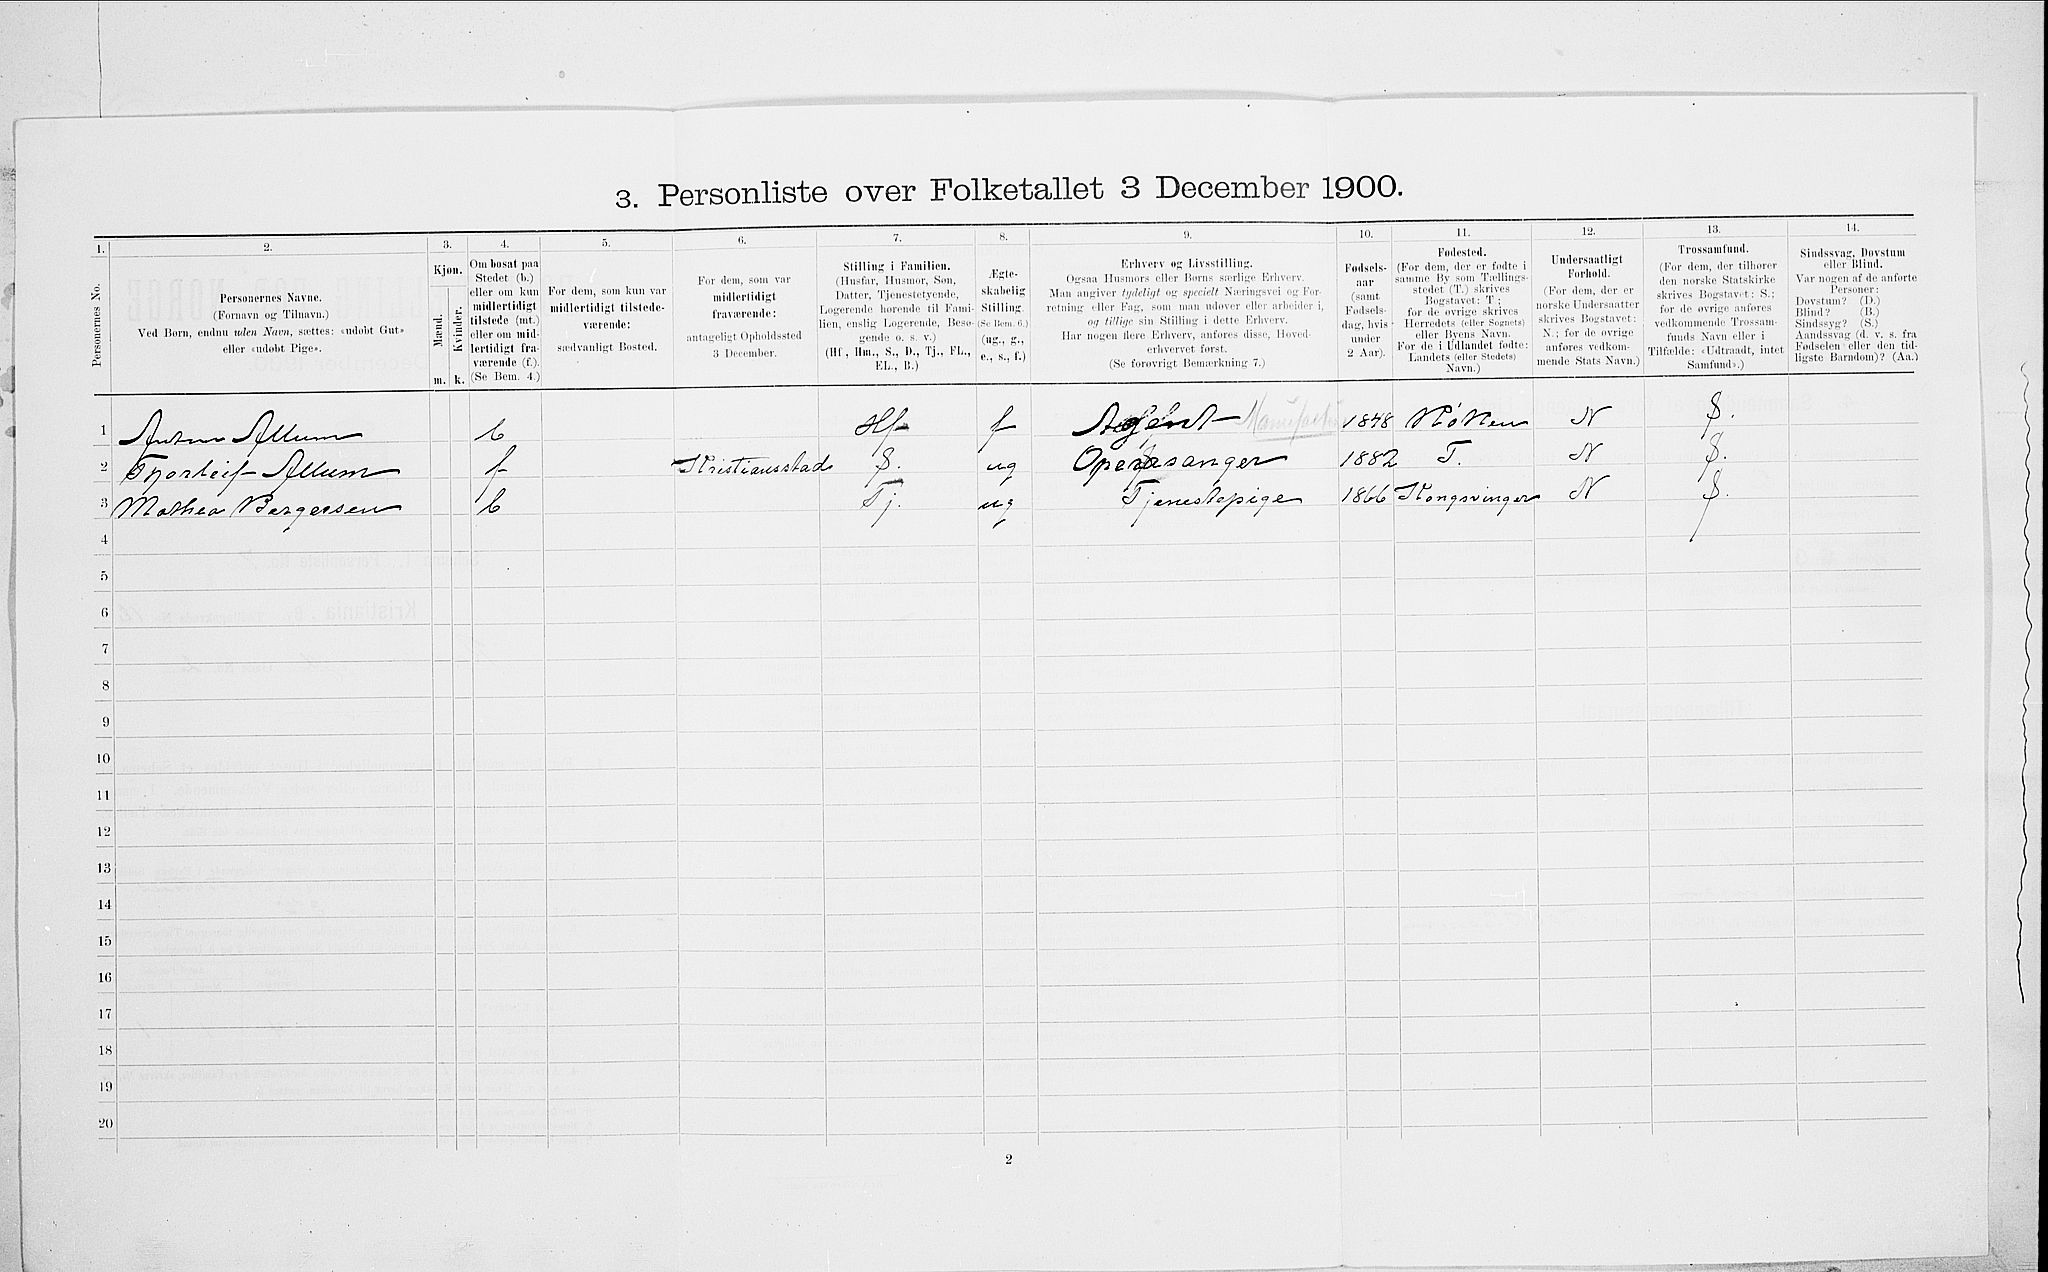 3. Personliste over Folketallet 3 December 1900.
1. 2. 3. 4. 5. 6. 7. 8. 9. 10. 11. 12. 13. 14.
Personernes No.
Personernes Navne.
(Fornavn og Tilnavn.)
Ved Børn, endnu uden Navn, sættes: «udøbt Gut»
eller «udøbt Pige».
Kjøn.
Mænd.
Kvinder.
m. k.
Om bosat paa
Stedet (b.)
eller om kun
midlertidigt
tilstede (mt.)
eller om mid-
lertidigt fra-
værende (f.).
(Se Bem. 4.)
For dem, som kun var
midlertidigt tilstede-
værende:
sædvanligt Bosted.
For dem, som var
midlertidigt
fraværende:
antageligt Opholdssted
3 December.
Stilling i Familien.
(Husfar, Husmor, Søn,
Datter, Tjenestetyende,
Logerende hørende til Fami-
lien, enslig Logerende, Besø-
gende o. s. v.)
(Hf., Hm., S., D., Tj., FL.,
EL., B.)
Ægte-
skabelig
Stilling.
(Se Bem. 6.)
(ug., g.,
e., s., f.)
Erhverv og Livsstilling.
Ogsaa Husmors eller Børns særlige Erhverv.
Man angiver tydeligt og specielt Næringsvei og For-
retning eller Fag, som man udøver eller arbeider i,
og tillige sin Stilling i dette Erhverv.
Har nogen flere Erhverv, anføres disse, Hoved-
erhvervet først.
(Se forøvrigt Bemærkning 7.)
Fødsels-
aar
(samt
Fødsels-
dag, hvis
under
2 Aar).
Fødested.
(For dem, der er fødte i
samme By som Tællings-
stedet (T.) skrives
Bogstavet: T;
for de øvrige skrives
Herredets (eller Sognets)
eller Byens Navn.
For de i Udlandet fødte:
Landets (eller Stedets)
Navn.)
Undersaatligt
Forhold.
(For dem, der er
norske Undersaatter
skrives Bogstavet:
N.; for de øvrige
anføres vedkom-
mende Stats Navn.)
Trossamfund.
(For dem, der tilhører
den norske Statskirke
skrives Bogstavet: S.;
for de øvrige anføres
vedkommende Trossam-
funds Navn eller i
Tilfælde: «Udtraadt, intet
Samfund».)
Sindssvag, Døvstum
eller Blind.
Var nogen af de anførte
Personer:
Døvstum? (D.)
Blind? (B.)
Sindssyg? (S.)
Aandssvag (d. v. s. fra
Fødselen eller den tid-
ligste Barndom)? (Aa.)
1 Anton Allum b Hf f Agent Manufaktur 1848 Røken N S.
2 Thorleif Allum f Kristiansstad S. ug Operasanger 1882 T. N S.
3 Mathea Bergersen b Tj. ug Tjenestepige 1866 Kongsvinger N S.
4
5
6
7
8
9
10
11
12
13
14
15
16
17
18
19
20
2